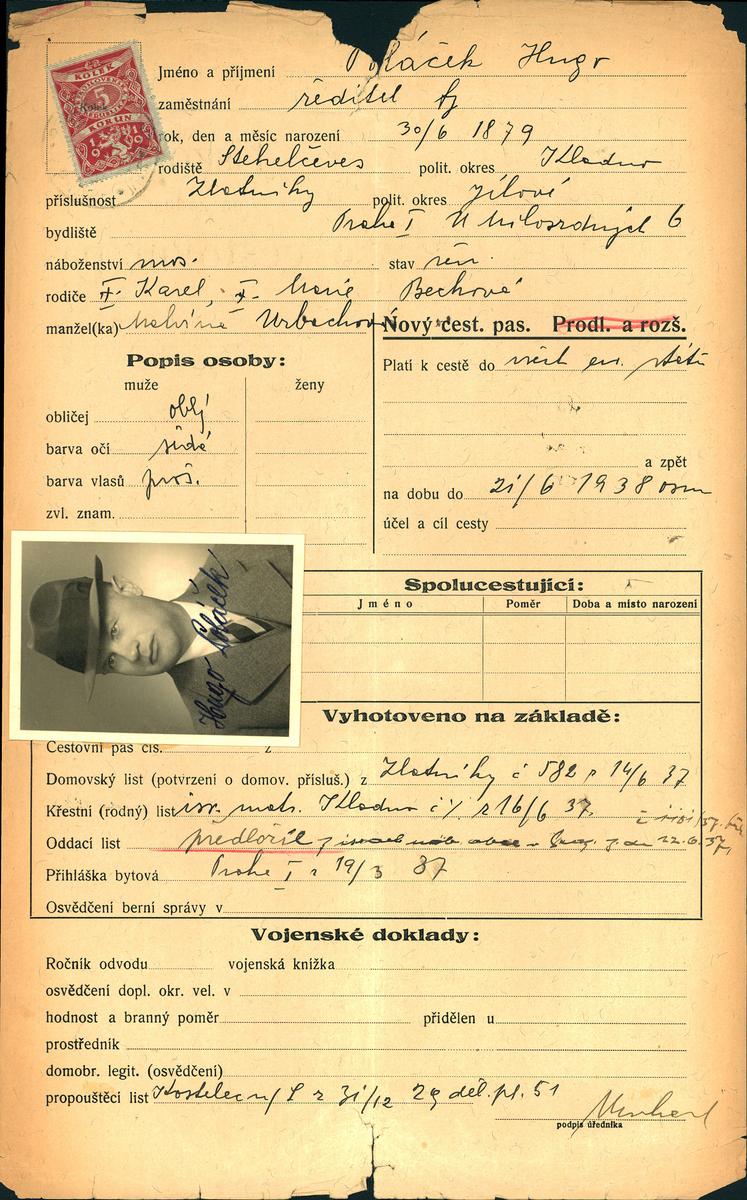 Kolek
KOLEK
5
KORUN
1919
Jméno a příjmení Poláček Hugo
zaměstnání ředitel
rok, den a měsíc narození 30/6 1879
rodiště Stehelčeves polit. okres Kladno
příslušnost Zlatníky polit. okres Jílové
bydliště Praha I U Milosrdných 6
náboženství mos. stav žen.
rodiče Karel, Marie Bechové
manžel(ka) Malvína Urbachová
Nový cest. pas. Prodl. a rozš.
Popis osoby:
muže ženy
obličej oblý
barva očí šedé
barva vlasů proš.
zvl. znam.
Platí k cestě do všech ev. států
a zpět
na dobu do 21/6 1938
účel a cíl cesty
Hugo Poláček
Spolucestující:
Jméno Poměr Doba a místo narození
Vyhotoveno na základě:
Cestovní pas čís. z
Domovský list (potvrzení o domov. přísluš.) z Zlatníky č 582 z 14/6 37
Křestní (rodný) list isr. matr. Kladno z 16/6 37
Oddací list předložil 22.6.37
Přihláška bytová Praha I z 19/3 37
Osvědčení berní správy v
Vojenské doklady:
Ročník odvodu vojenská knížka
osvědčení dopl. okr. vel. v
hodnost a branný poměr přidělen u
prostředník
domobr. legit. (osvědčení)
propouštěcí list Kostelec n/ L z 31/12 29 děl. pl. 51
podpis úředníka